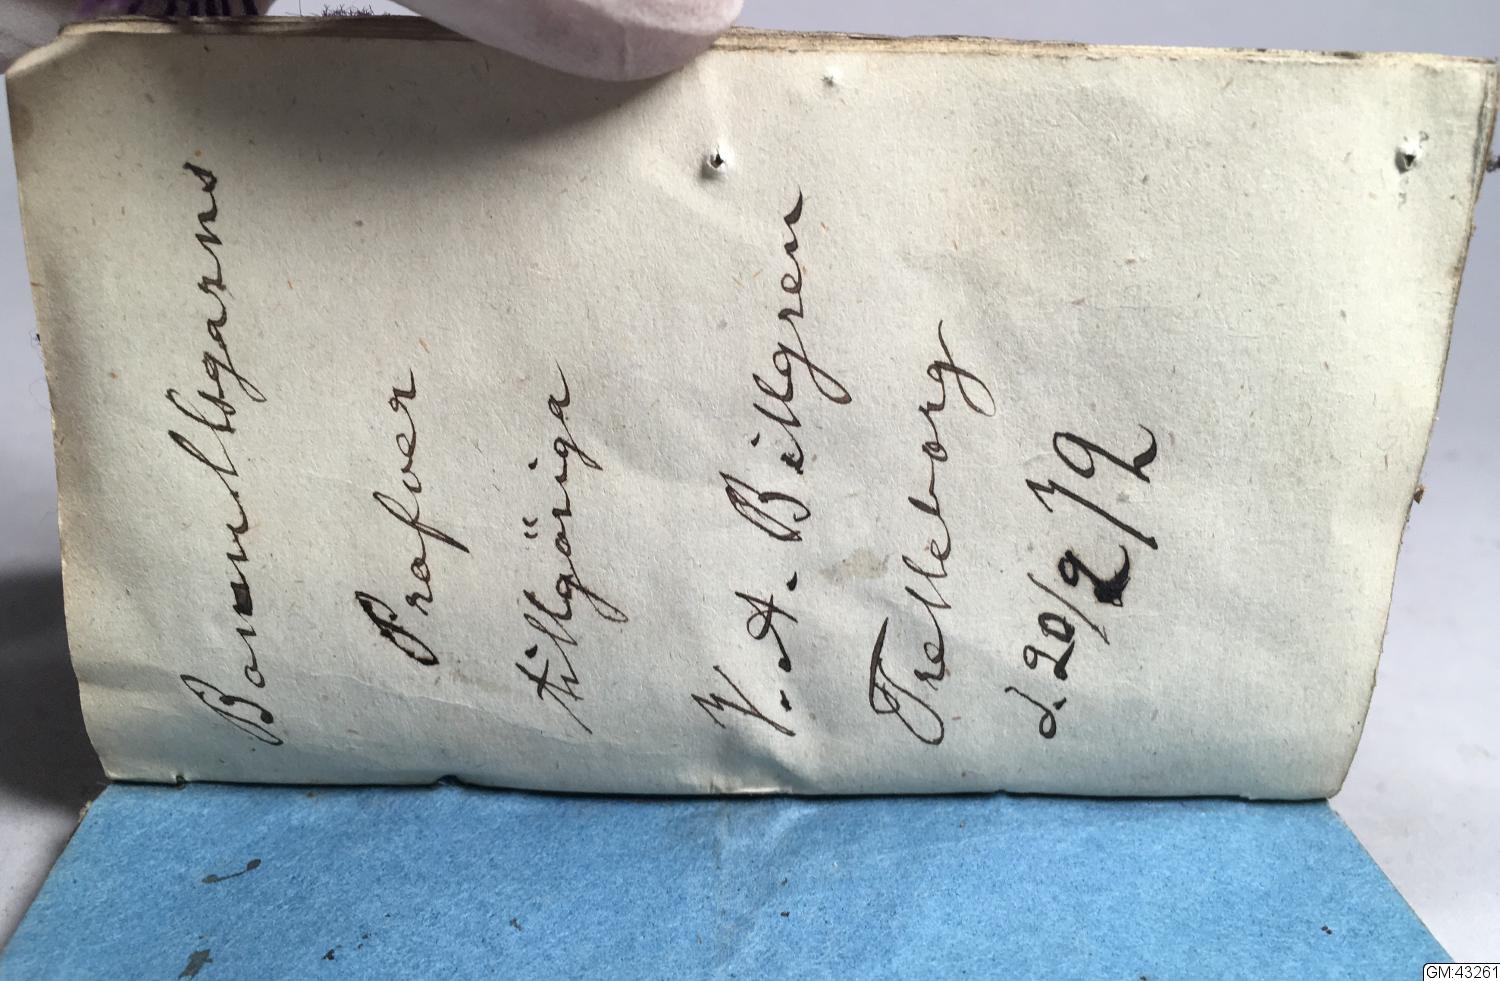 Bommullsgarns
Profver
tillhöriga
V. A. Billgren
Trelleborg
d. 20/2 72
GM:43261